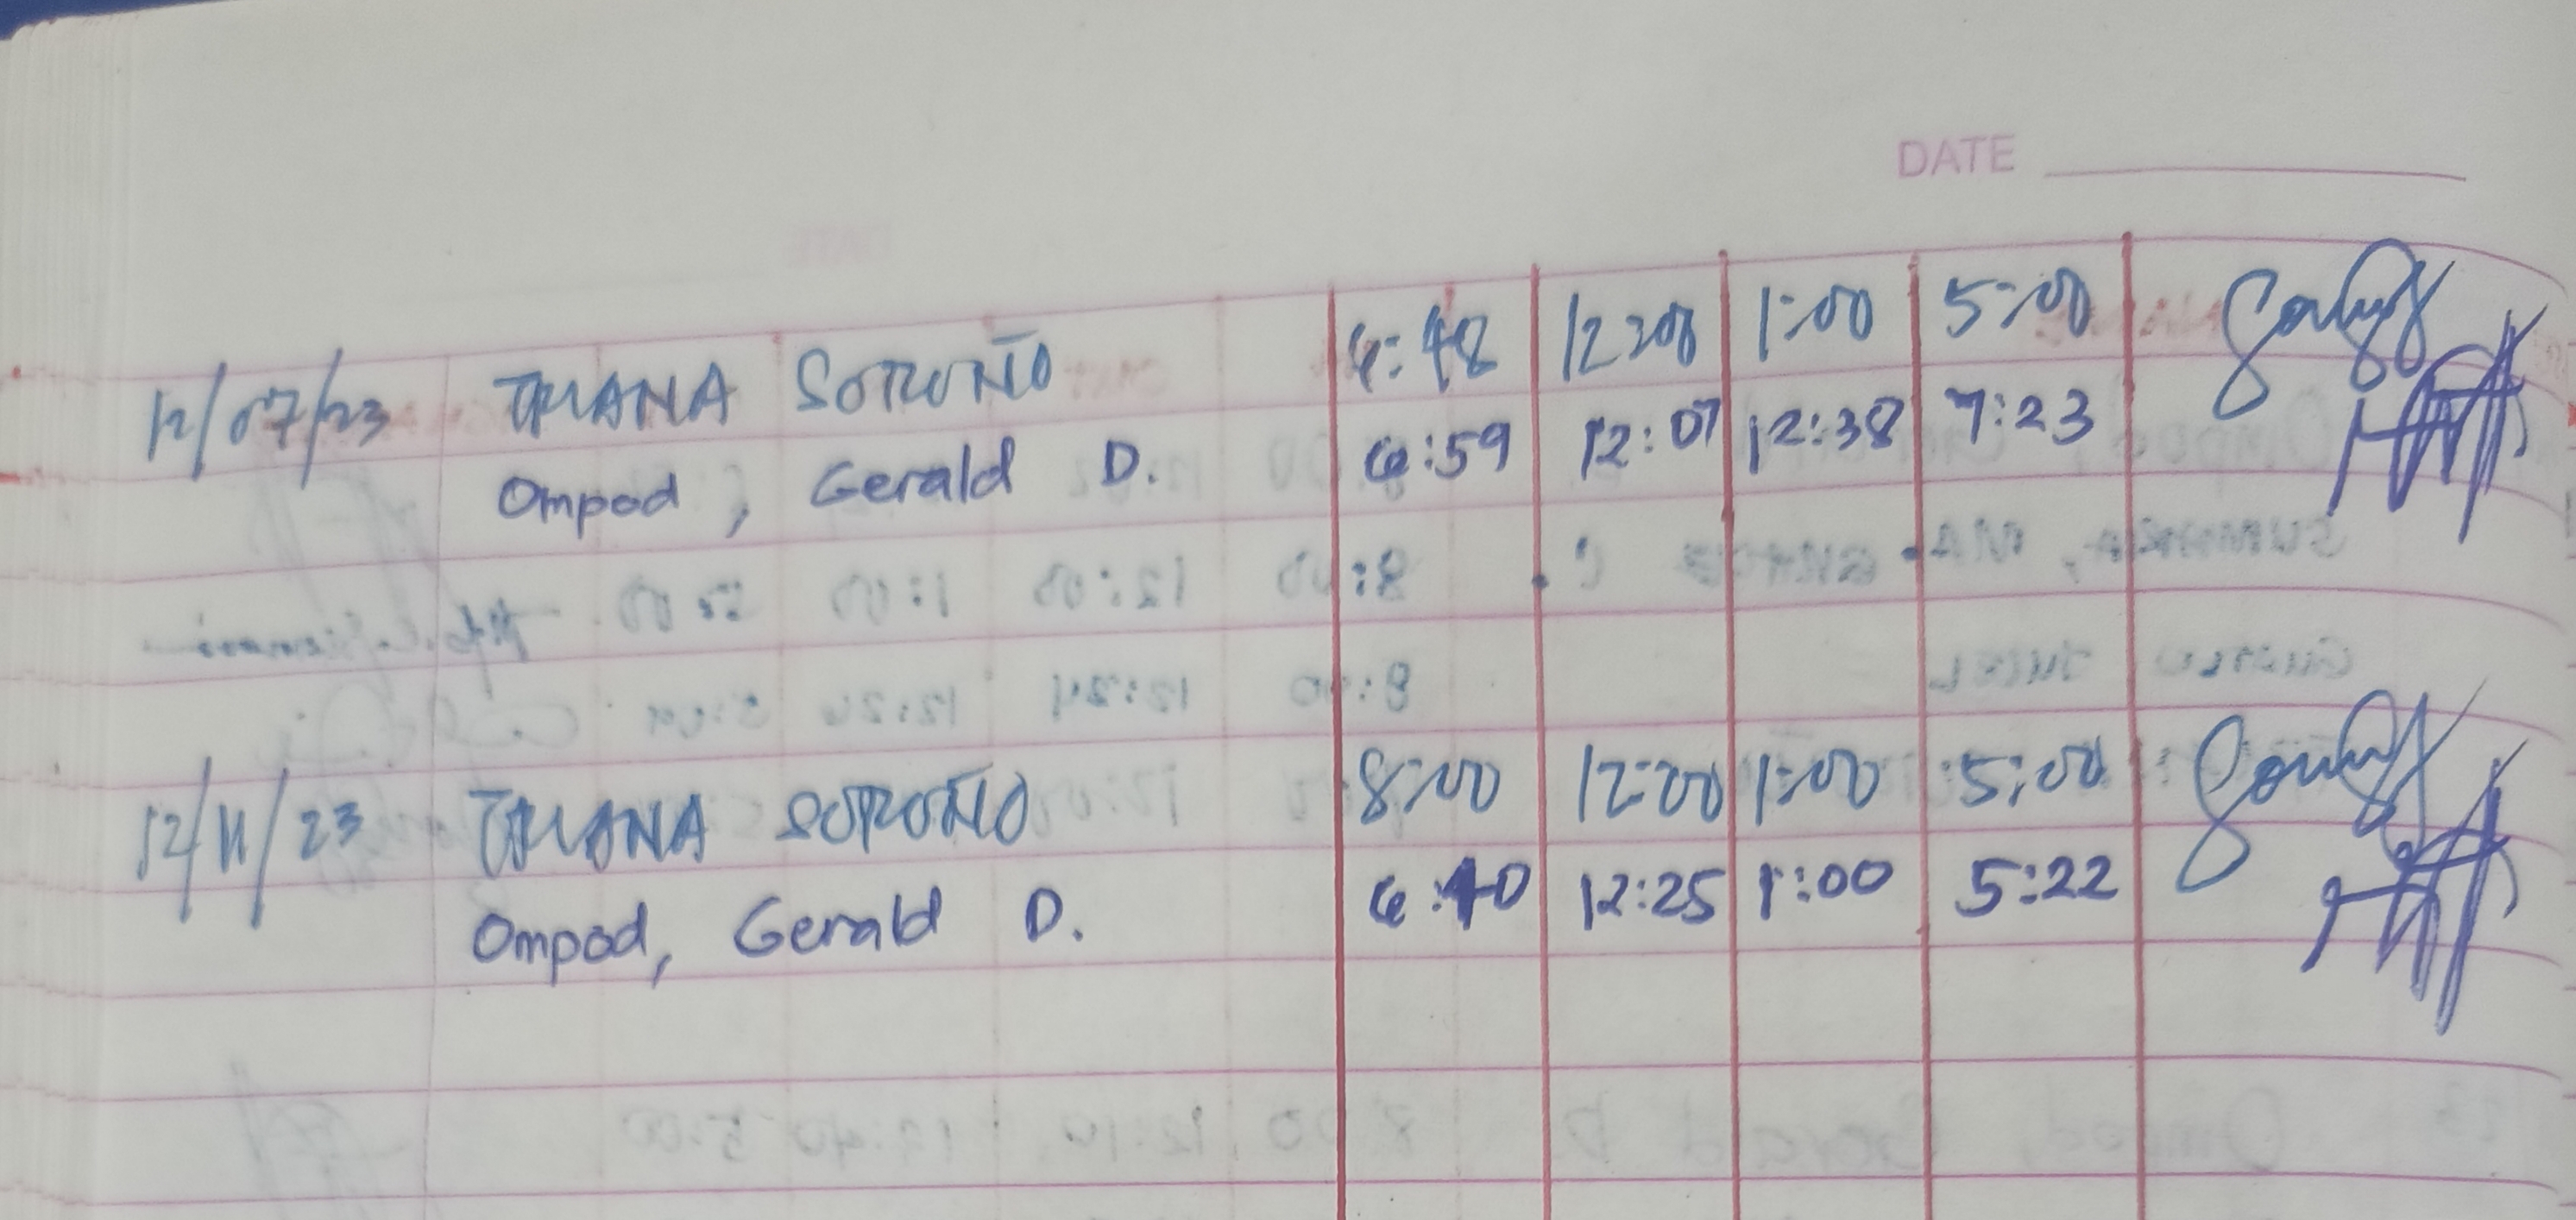 DATE
12/07/23 SOROÑO 6:48 12:00 1:00 5:00
Ompod, Gerald D. 6:59 12:07 12:38 7:23
12/11/23 SOROÑO 8:00 12:00 1:00 5:00
Ompod, Gerald D. 6:40 12:25 1:00 5:22